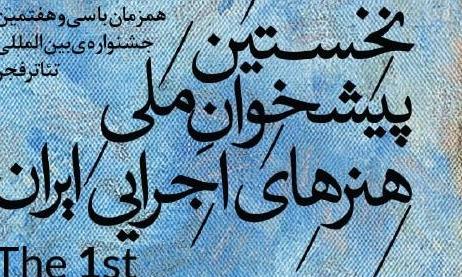 نخستین
پیشخوانِ ملی
هنرهای اجرایی ایران
همزمان با سی و هفتمین
جشنواره‌ی بین‌المللی
تئاتر فجر
The 1st